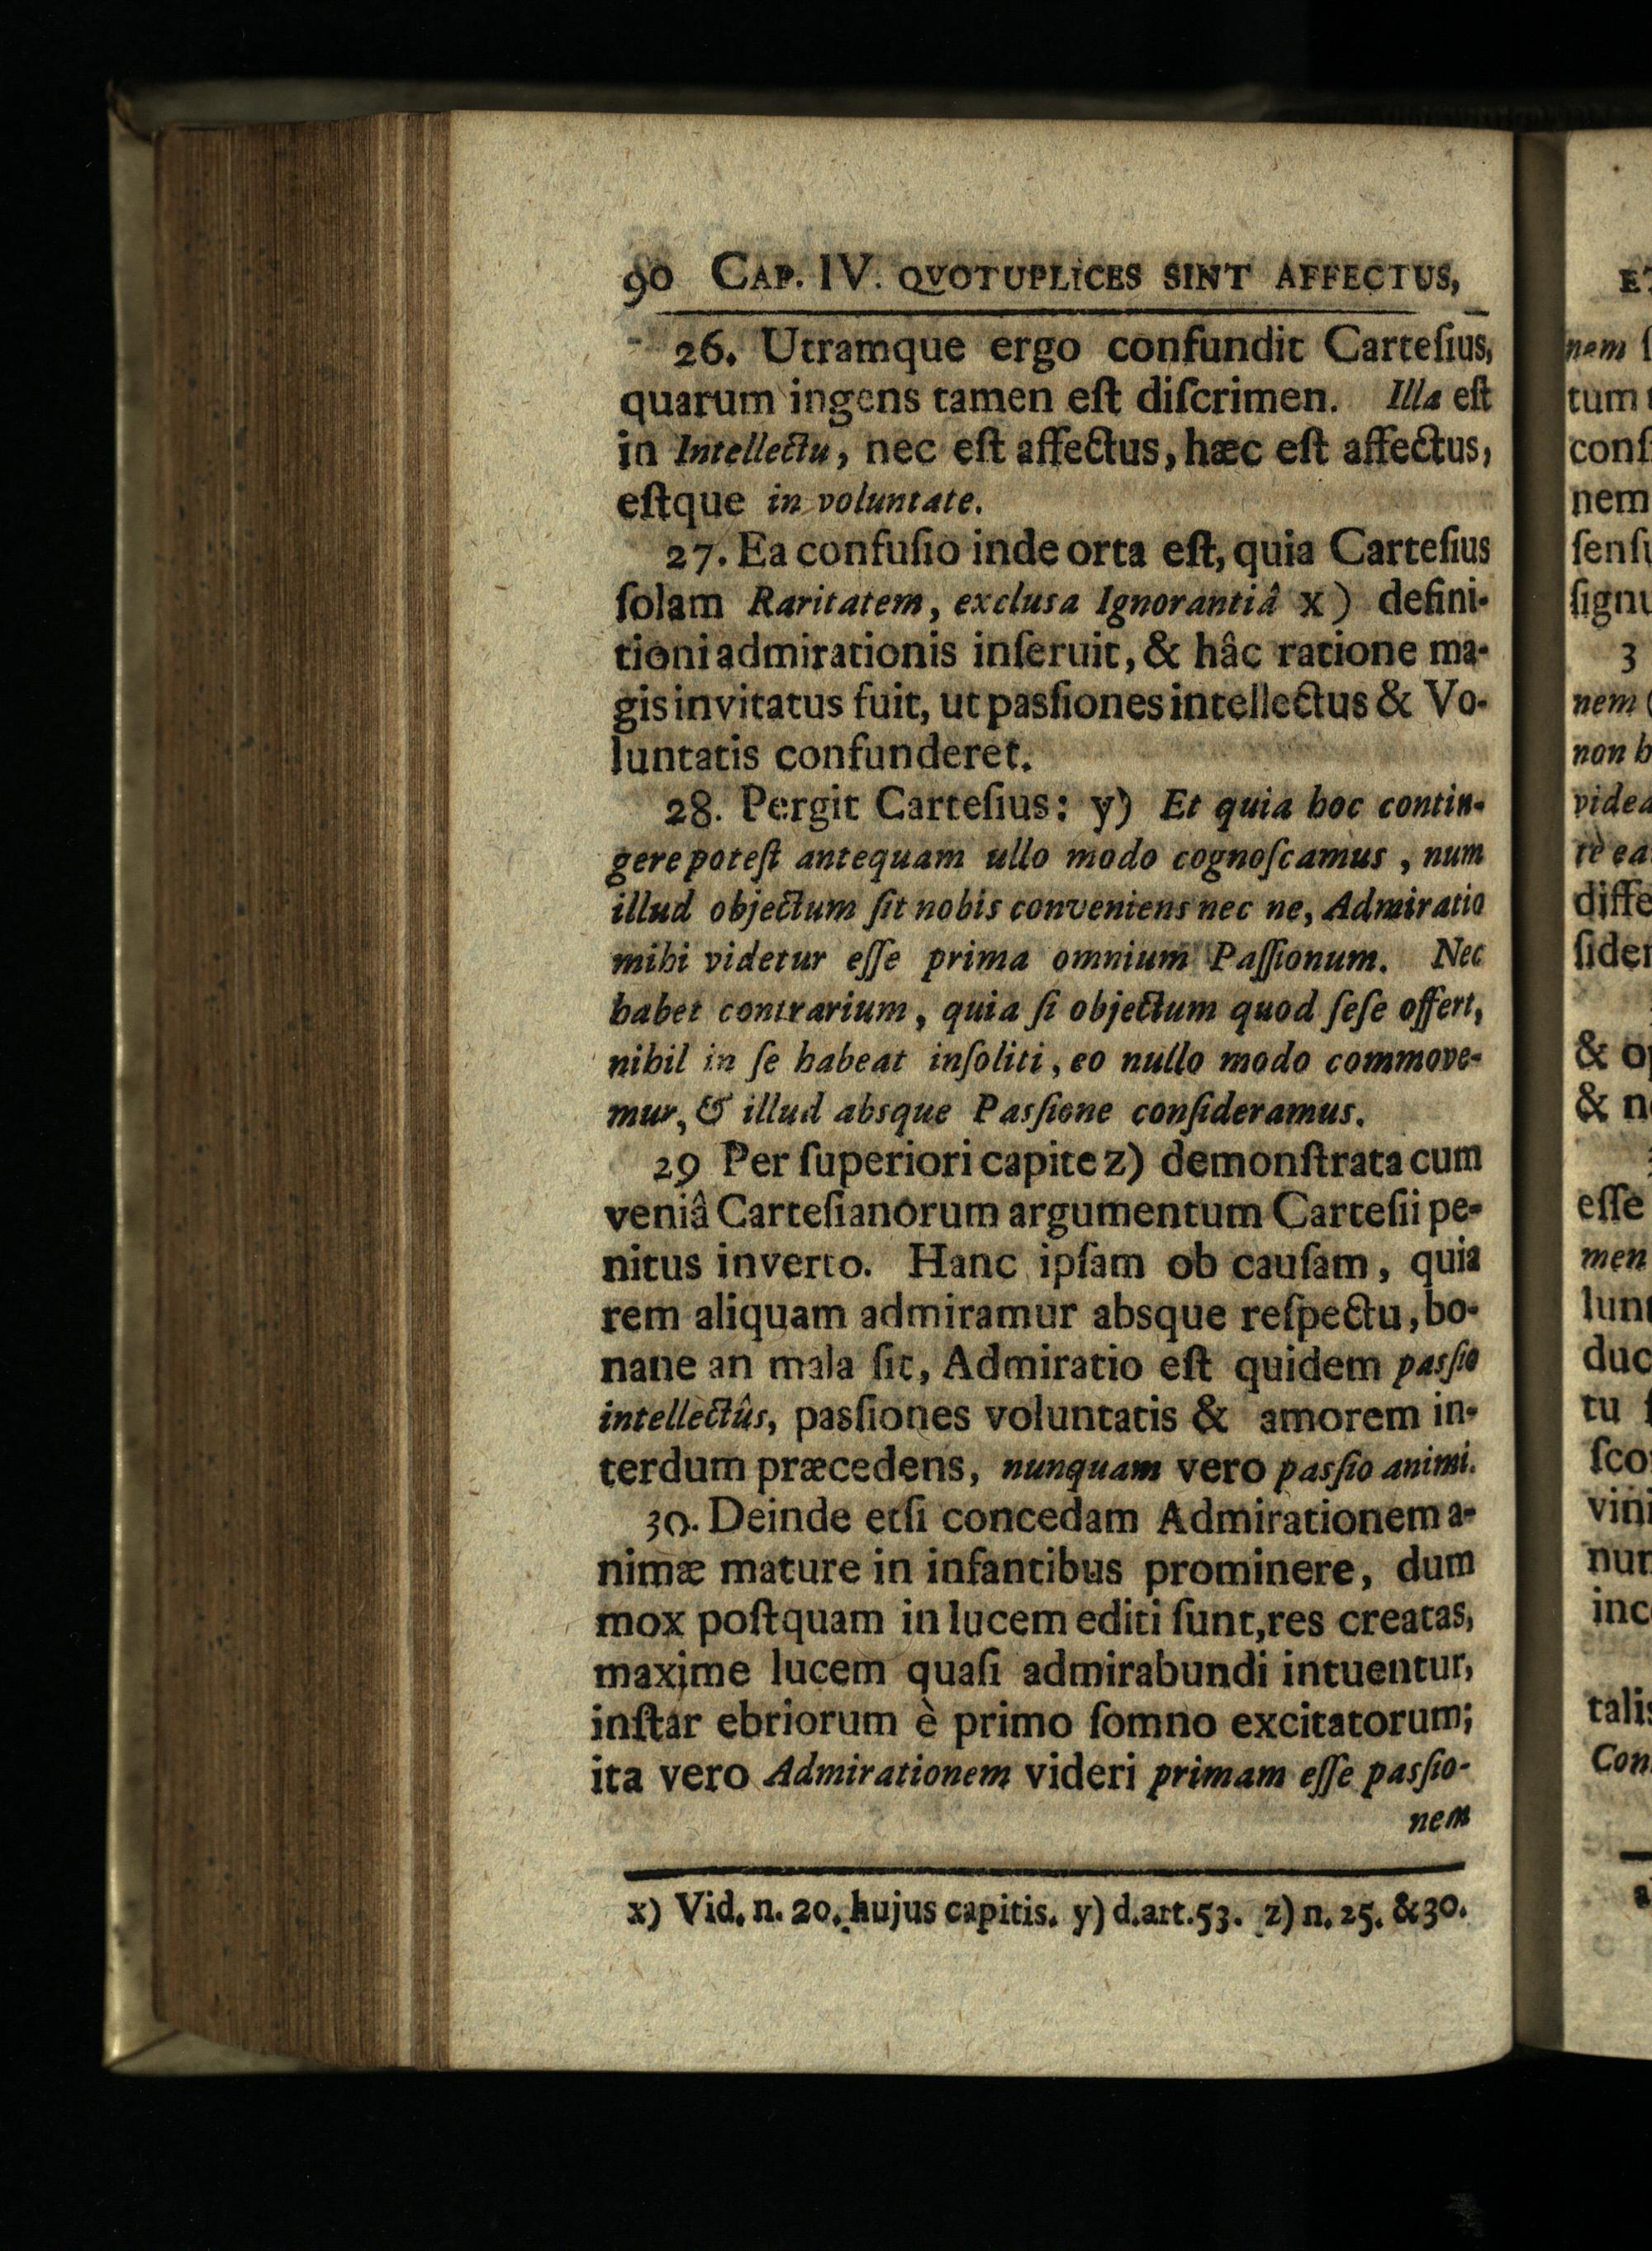 90 CAP. IV. QVOTUPLICES SINT AFFECTUS,
26. Utramque ergo confundit Carteſius,
quarum ingens tamen eſt diſcrimen. Illa eſt
in Intellectu, nec eſt affectus, hæc eſt affectus,
eſtque in voluntate.
27. Ea confuſio inde orta eſt, quia Carteſius
ſolam Raritatem, exclusa Ignorantiâ x) defini-
tioni admirationis inſeruit, & hâc ratione ma-
gis invitatus fuit, ut pasſiones intellectus & Vo-
luntatis confunderet.
28. Pergit Carteſius: y) Et quia hoc contin-
gere poteſt antequam ullo modo cognoſcamus, num
illud objectum ſit nobis conveniens nec ne, Admiratio
mihi videtur eſſe prima omnium Paſſionum. Nec
habet contrarium, quia ſi objectum quod ſeſe offert,
nihil in ſe habeat inſoliti, eo nullo modo commove-
mur, & illud absque Pasſione conſideramus.
29 Per ſuperiori capite z) demonſtrata cum
veniâ Carteſianorum argumentum Carteſii pe-
nitus inverto. Hanc ipſam ob cauſam, quia
rem aliquam admiramur absque reſpectu, bo-
nane an mala ſit, Admiratio eſt quidem pasſio
intellectûs, pasſiones voluntatis & amorem in-
terdum præcedens, nunquam vero pasſio animi.
30. Deinde etſi concedam Admirationem a-
nimæ mature in infantibus prominere, dum
mox poſtquam in lucem editi ſunt, res creatas,
maxime lucem quaſi admirabundi intuentur,
inſtar ebriorum è primo ſomno excitatorum;
ita vero Admirationem videri primam eſſe pasſio-
nem
x) Vid. n. 20. hujus capitis. y) d. art. 53. z) n. 25. & 30.
nem
tum
nem
3
nem
non
& 
& 
eſſe
men
tu